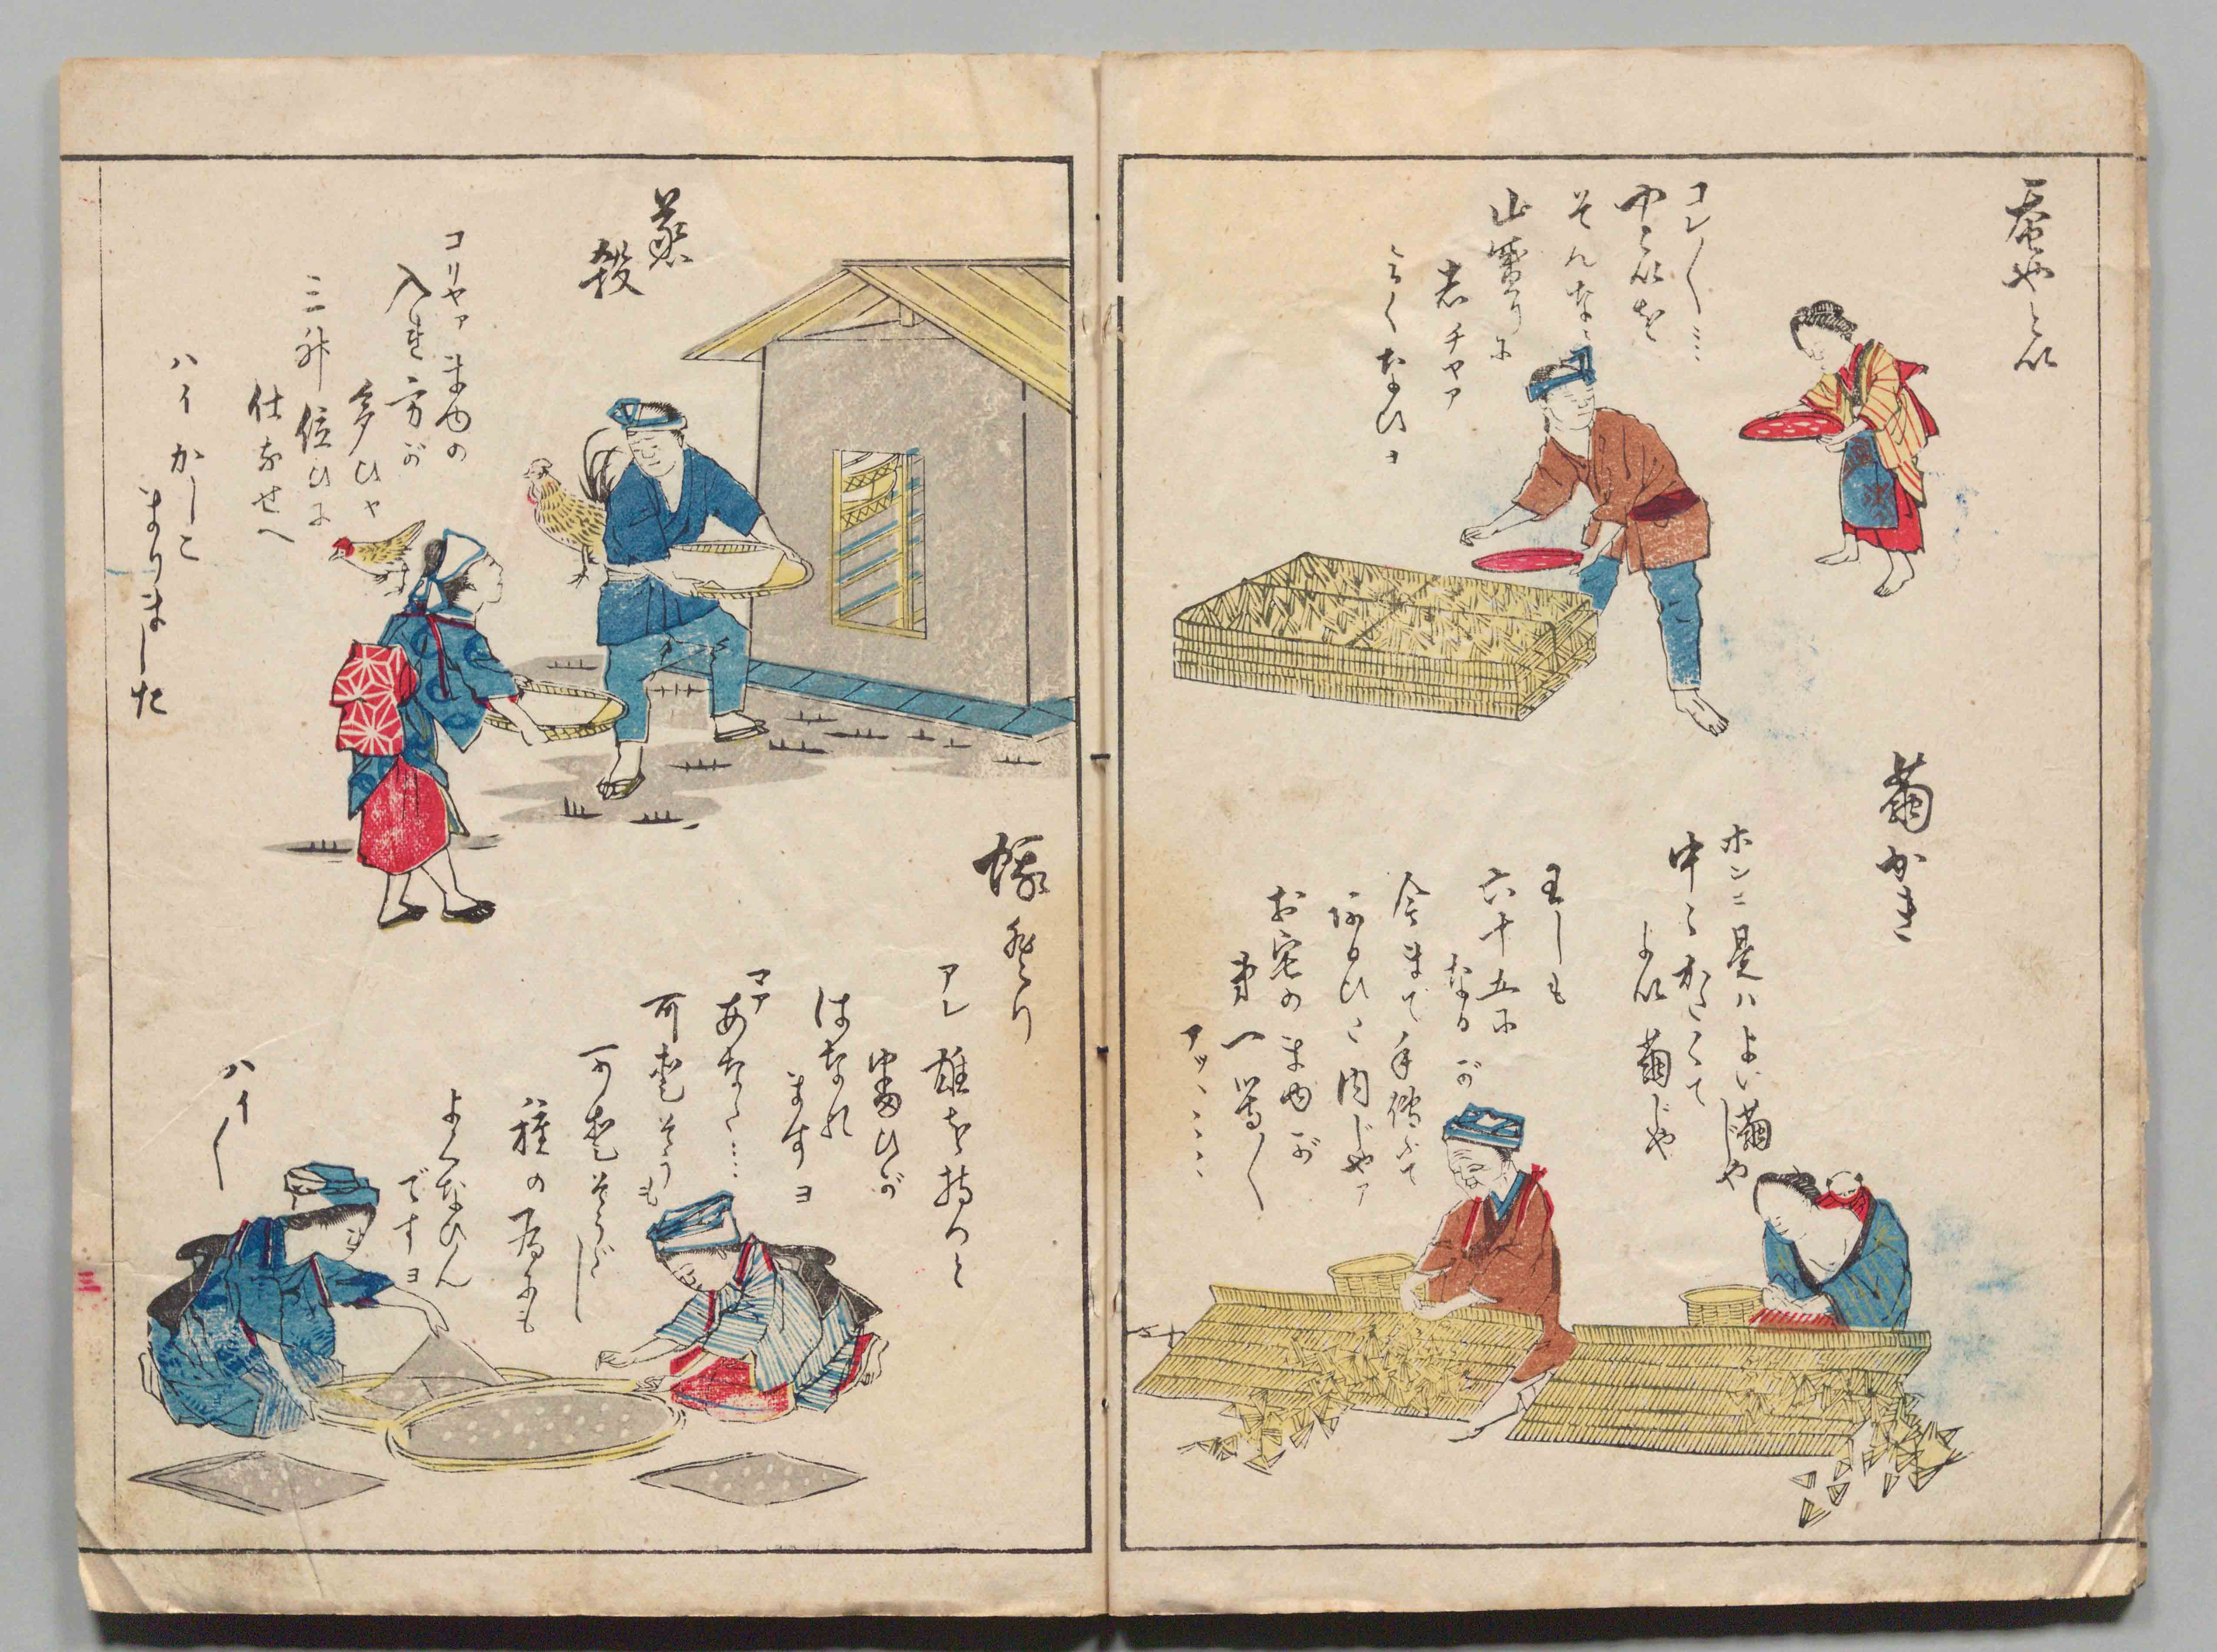 蚕やとい
コレ〱…
やといを
そんなに
山盛りに
チヤア
なひヨ
繭かき
ホンニ是ハよい繭じや
中に
よい繭じや
王しも
六十五に
なるが
今まで手
内じやア
お宅のまゆが
第一等〱
アツ、、、、
蒸殺
コリヤアまゆの
入れ方が
多ひや
三升位ひに
仕なせへ
ハイかしこ
まりました
蛾とり
アレ雄を持つと
番ひが
はなれ
ますヨ
マアあなた…
可愛そうも
可愛そうだし
種の為にも
よくなひん
ですヨ
ハイ〱